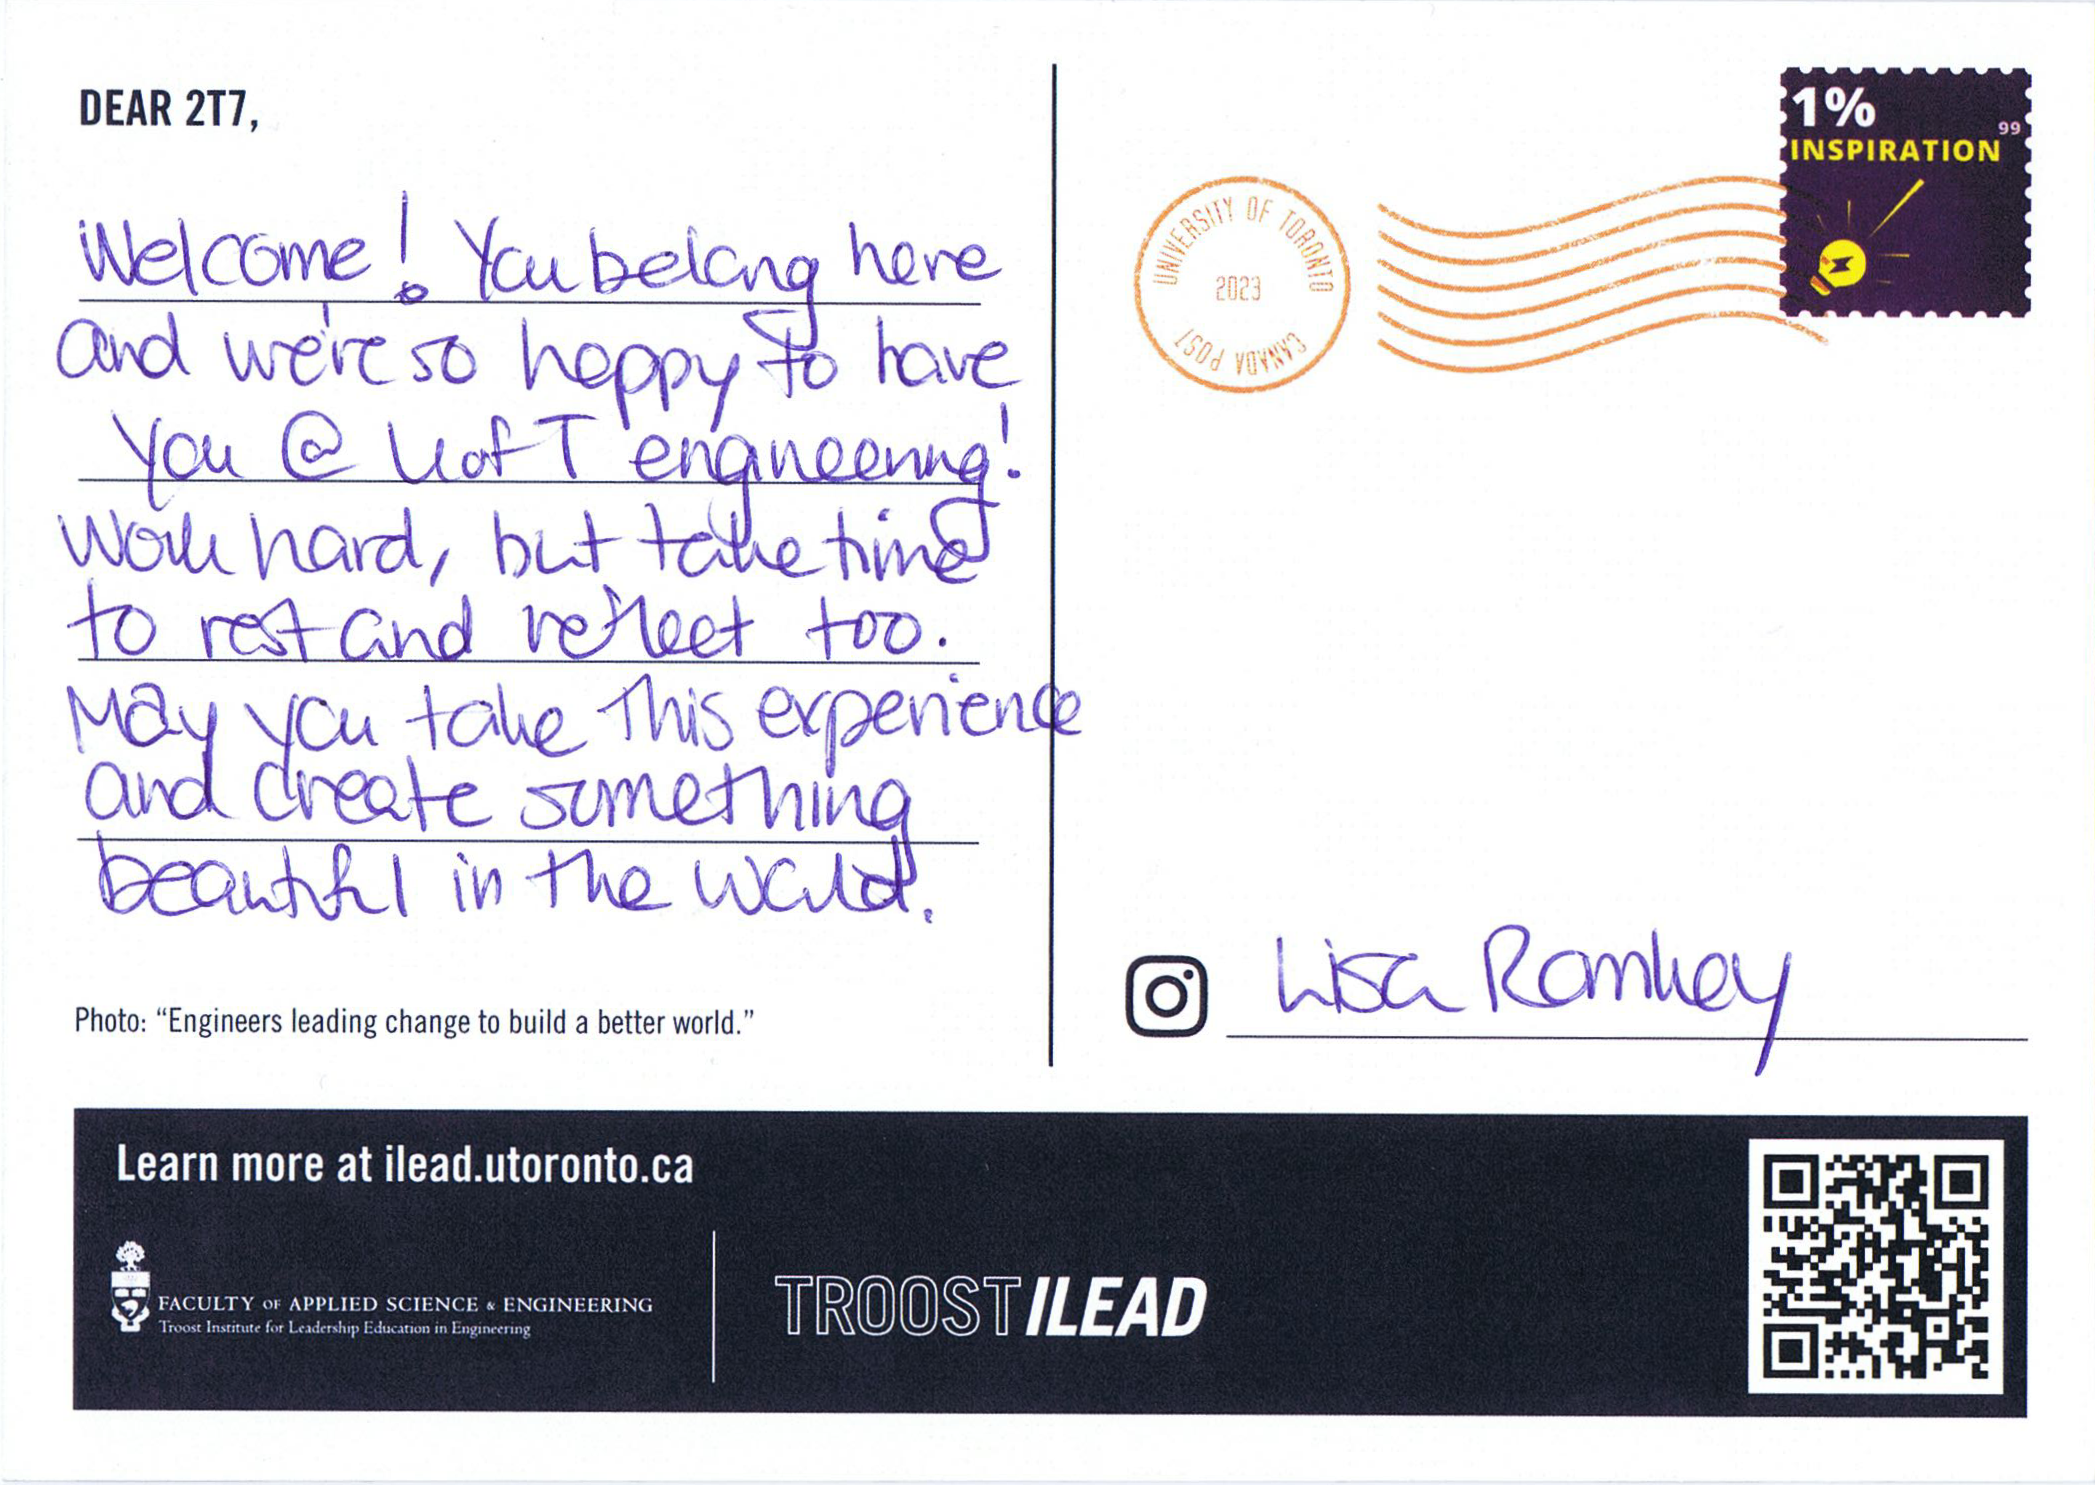 DEAR 2T7,
Welcome! You belong here
and we're so happy to have
you @ UofT engineering!
Work hard, but take time
to rest and reflect too.
May you take this experience
and create something
beautiful in the world.
Photo: “Engineers leading change to build a better world.”
1%
99
INSPIRATION
UNIVERSITY OF TORONTO
2023
CANADA POST
Lisa Romkey
Learn more at ilead.utoronto.ca
FACULTY OF APPLIED SCIENCE & ENGINEERING
Troost Institute for Leadership Education in Engineering
TROOST ILEAD